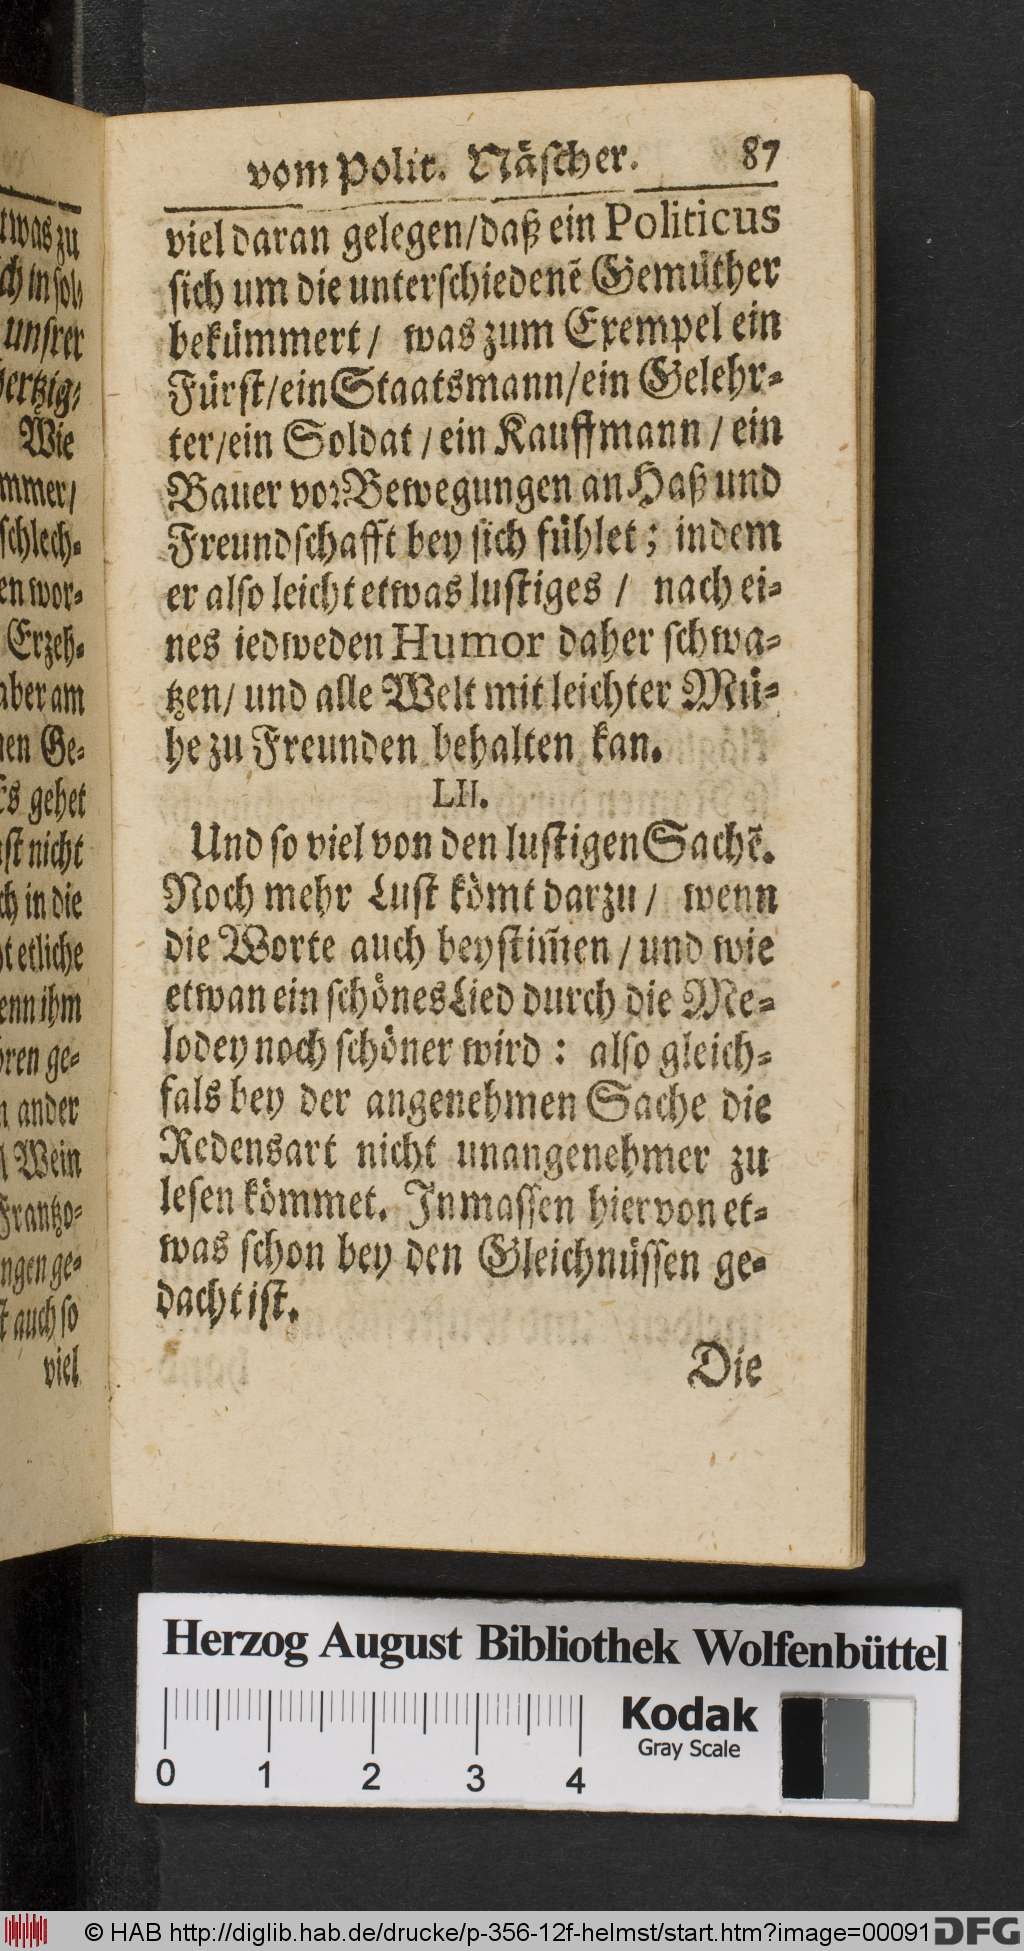 twas zu
ch in sol-
unsrer
hertzig-
Wie
mmer/
schlech-
en wor-
Erzeh-
aber am
nen Ge-
Es gehet
nicht
ch in die
etliche
enn ihm
ören ge-
ander
Wein
Frantzo-
ngen ge-
auch so
viel
vom Polit. Näscher. 87
viel daran gelegen/daß ein Politicus
sich um die unterschiedenē Gemüther
bekümmert/ was zum Exempel ein
Fürst/ein Staatsmann/ein Gelehr-
ter/ein Soldat/ein Kauffmann/ein
Bauer vor Bewegungen an Haß und
Freundschafft bey sich fühlet; indem
er also leicht etwas lustiges/ nach ei-
nes iedweden Humor daher schwa-
tzen/ und alle Welt mit leichter Mü-
he zu Freunden behalten kan.
LII.
Und so viel von den lustigen Sachē.
Noch mehr Lust kömt darzu/ wenn
die Worte auch beystim̄en/und wie
etwan ein schönes Lied durch die Me-
lodey noch schöner wird: also gleich-
fals bey der angenehmen Sache die
Redensart nicht unangenehmer zu
lesen kömmet. Inmassen hiervon et-
was schon bey den Gleichnüssen ge-
dacht ist.
Die
Herzog August Bibliothek Wolfenbüttel
Kodak
Gray Scale
0 1 2 3 4
© HAB http://diglib.hab.de/drucke/p-356-12f-helmst/start.htm?image=00091
DFG